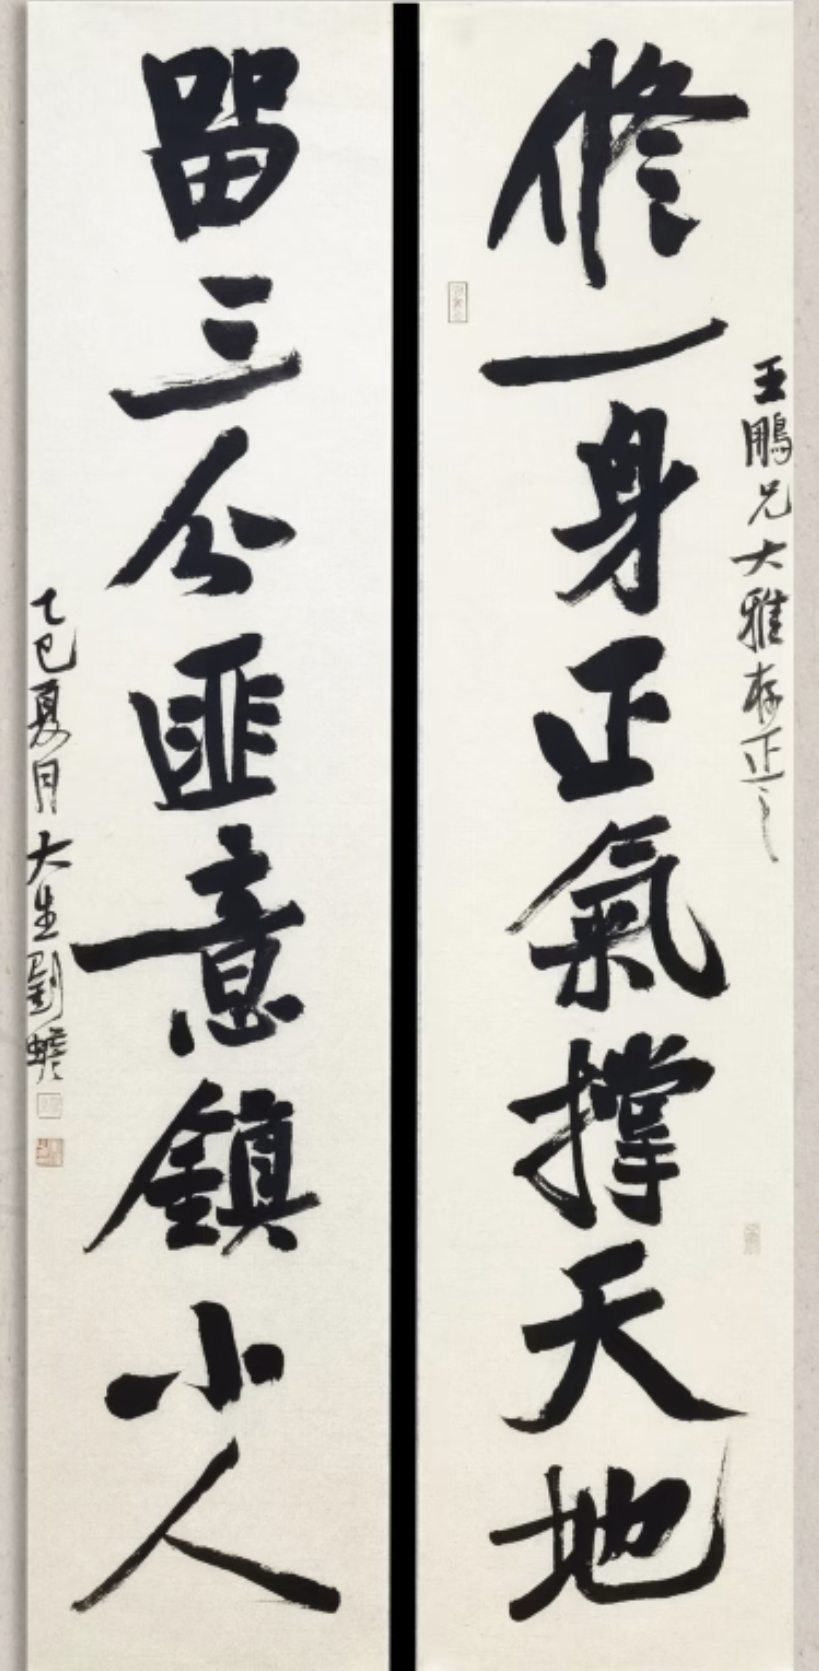 修一身正氣撐天地
王鵬兄大雅存正之
留三分匪意鎮小人
乙巳夏月大生劉蟾